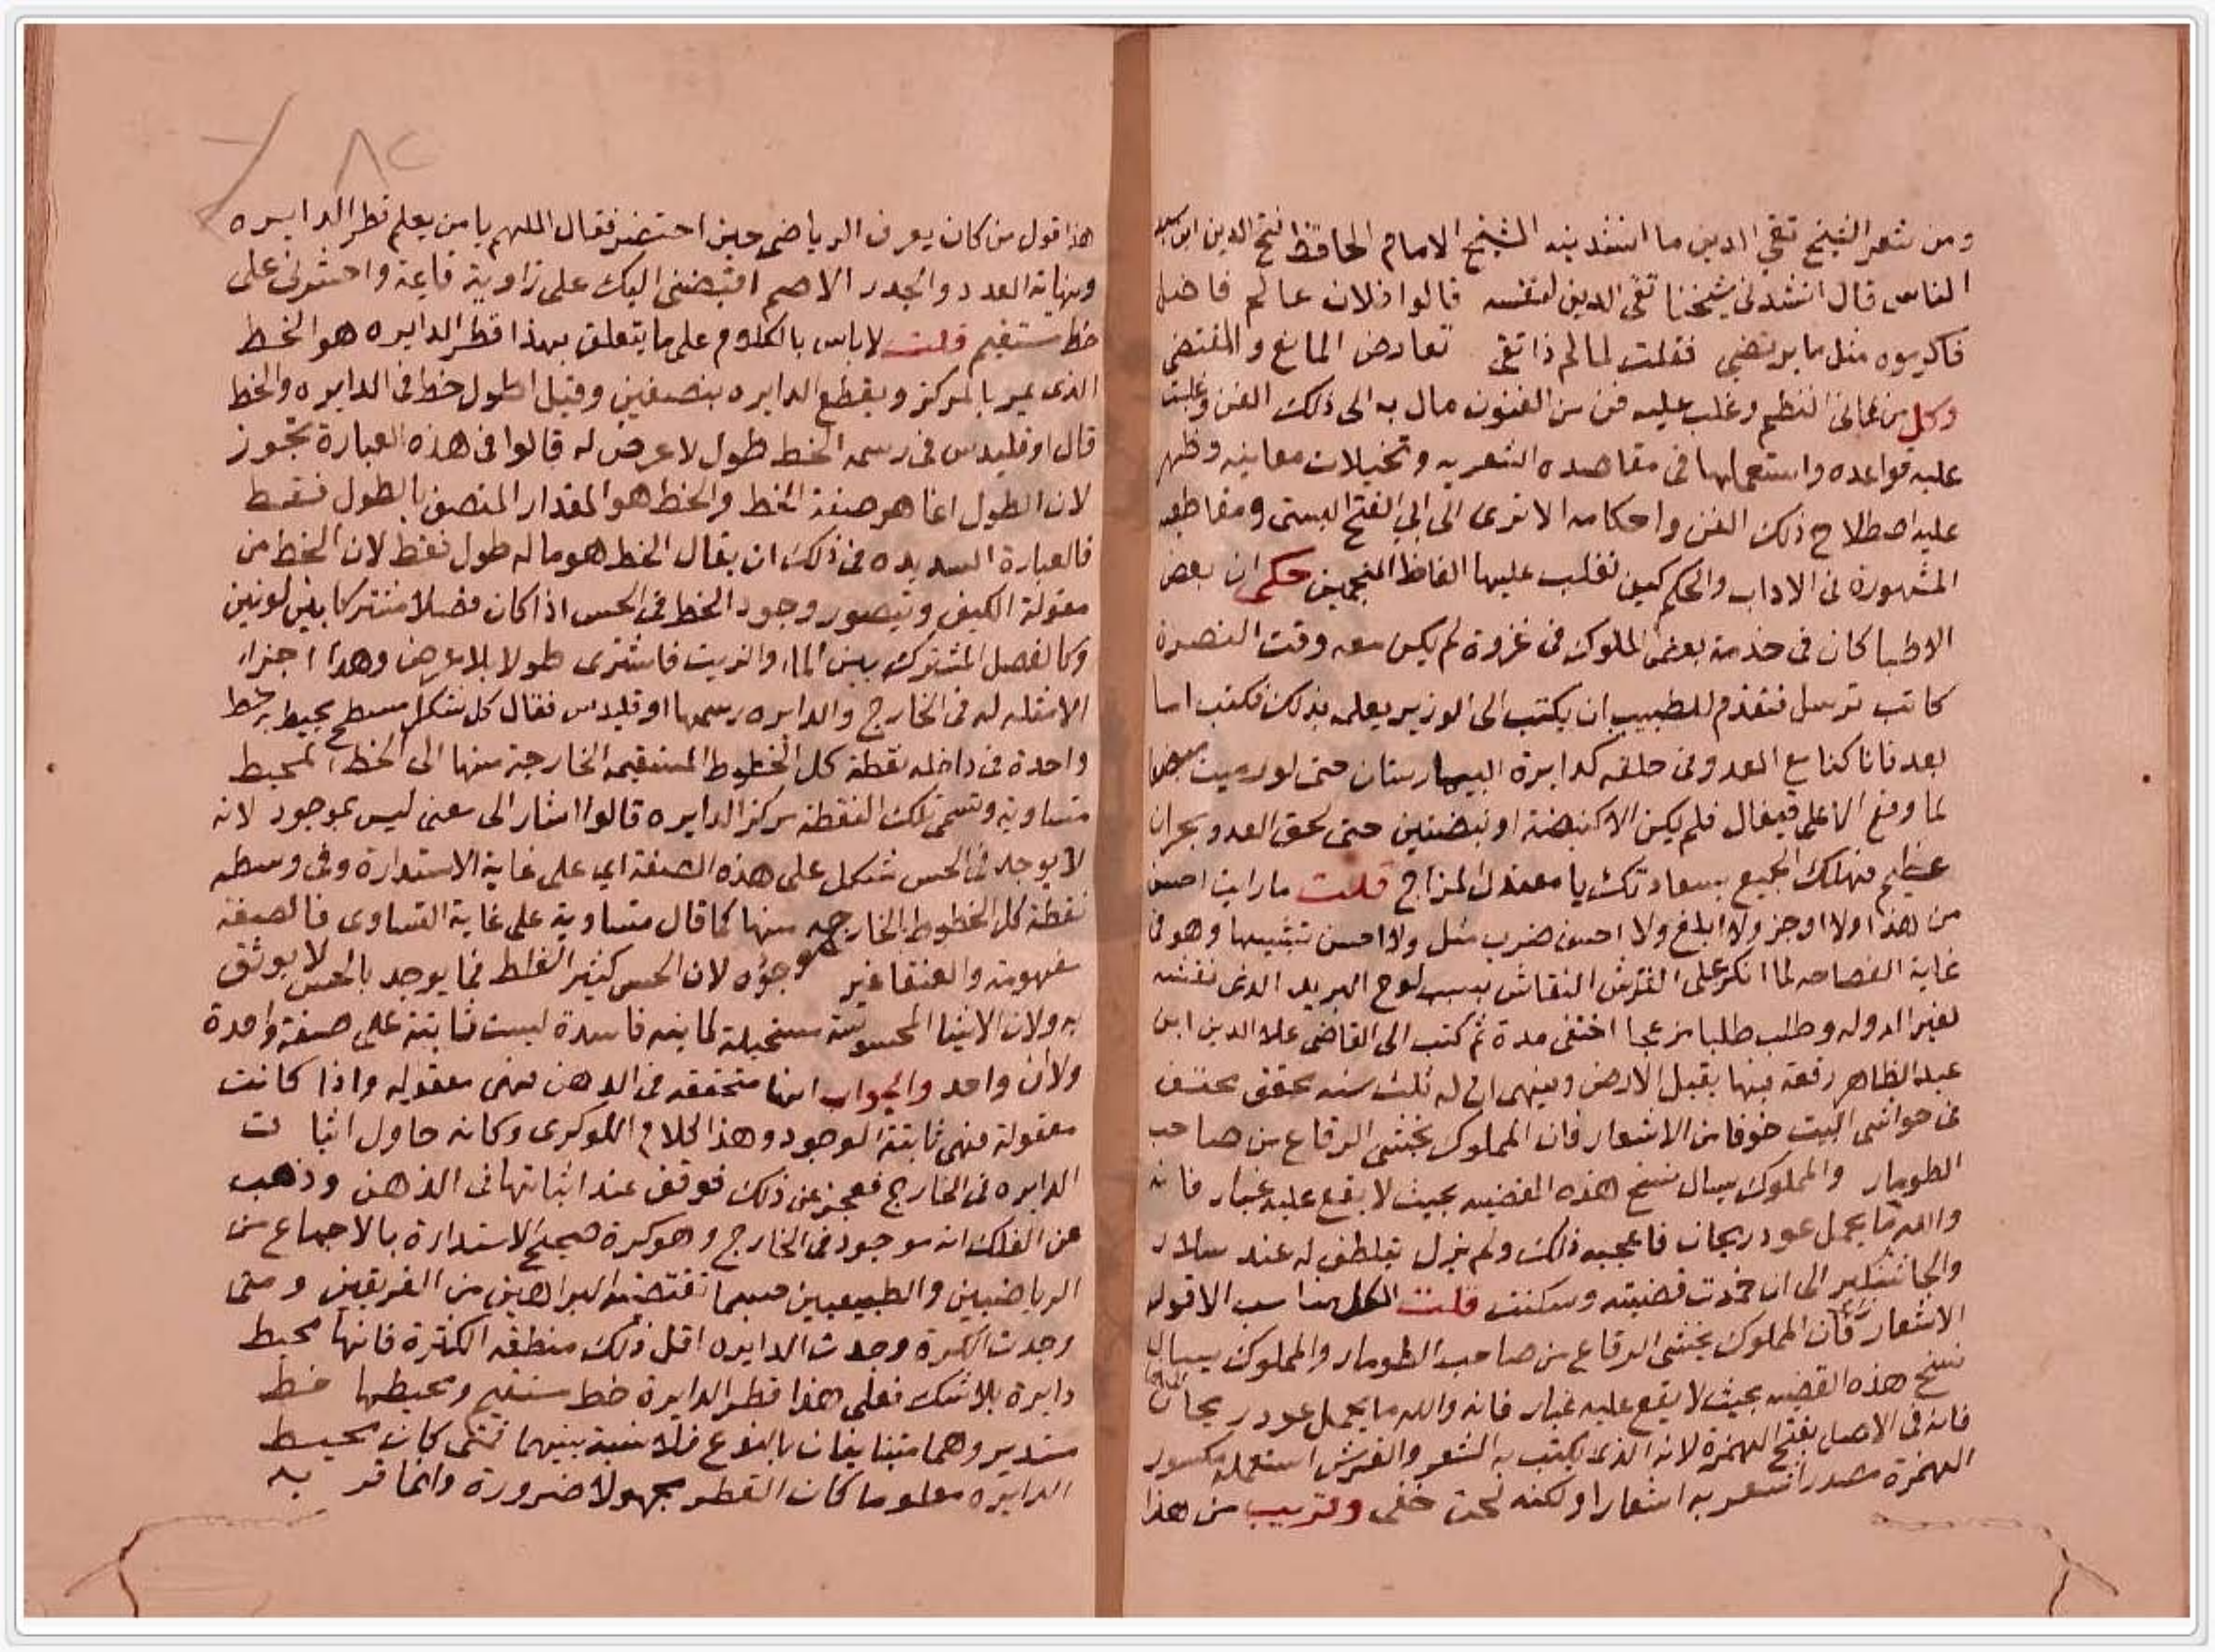 ومن شعر الشيخ تقي الدين ما انشدنيه الشيخ الامام الحافظ فتح الدين ابن سيد
الناس قال انشدني شيخنا تقي الدين لنفسه قالوا فلان عالم فاضل
فاكرموه مثل ما يرتضي فقلت لما لم يكن ذا تقي تعارض المانع والمقتضي
وكل من عانى النظم وغلب عليه فن من الفنون مال به الى ذلك الفن وغلبت
عليه قواعده واستعملها في مقاصده الشعريه وتخيلات معانيه وظهر
عليه اصطلاح ذلك الفن واحكامه الا ترى الى ابي الفتح البستي ومقاطيعه
المشهورة في الاداب والحكم كيف تغلب عليها الفاظ المنجمين حكى ان بعض
الاطبا كان في خدمة بعض الملوك في غزوة لم يكن معه وقت النصرة
كاتب ترسل فتقدم للطبيب ان يكتب الى الوزير يعلمه بذلك فكتب اما
بعد فانا كنا مع العدو في حلقه كدايرة البيمارستان حتى لو رميت مبضعا
لما وقع الا على قيفال فلم يكن الا كنبضة او نبضتين حتى لحق العدو بحران
عظيم فهلك الجميع بسعادتك يا معتدل المزاج قلت ما رايت احسن
من هذا ولا اوجز ولا ابلغ ولا احسن ضرب مثل ولا احسن تشبيها وهو في
غاية الفصاحه لما انكر على القرش النقاش بسبب لوح البريد الذي نقشه
لغير الدوله وطلب طلبا مزعجا اختفى مدة ثم كتب الى القاضي علا الدين ابن
عبد الظاهر رقعة فيها يقبل الارض وينهي ان له ثلث سنه محقق مختف
في حواشي البيت خوفا من الاشعار فان المملوك يخشى الرقاع من صاحب
الطومار والمملوك يسال نسخ هذه القضيه بحيث لا يقع عليه غبار فانه
والله ما يحمل عود ريحان فاعجبه ذلك ولم يزل يتلطف له عند سلار
والجاشنكير الى ان خمدت قضيته وسكنت قلت الكل مناسب الا قوله
الاشعار فان المملوك يخشى الرقاع من صاحب الطومار والمملوك يسال
نسخ هذه القضيه بحيث لا يقع عليه غبار فانه والله ما يحمل عود ريحان
فانه في الاصل بفتح الهمزة لانه الذي يكتب به الشعر والقرش استعمله مكسور
الهمزة مصدر اشعر به اشعارا ولكنه لحن خفي وقريب من هذا
٨٢
هذا قول من كان يعرف الرياضي حين احتضر فقال اللهم يا من يعلم قطر الدايره
ونهاية العدد والجدر الاصم اقبضني اليك على زاوية قايمة واحشرني على
خط مستقيم قلت لا باس بالكلام على ما يتعلق بهذا قطر الدايره هو الخط
الذي يمر بالمركز ويقطع الدايره بنصفين وقيل اطول خط في الدايره والخط
قال اوقليدس في رسمه الخط طول لا عرض له قالوا في هذه العبارة تجوز
لان الطول انما هو صفة الخط والخط هو المقدار المتصف بالطول فقط
فالعبارة السديده في ذلك ان يقال الخط هو ما له طول فقط لان الخط من
مقولة الكيف ويتصور وجود الخط في الحس اذا كان فصلا مشتركا بين لونين
وكالفصل المشترك بين الماء والزيت فاشترى طولا بلا عرض وهذا اجزاء
الامثله له في الخارج والدايره رسمها اوقليدس فقال كل شكل مسطح يحيط به خط
واحدة في داخله نقطة كل الخطوط المستقيمه الخارجة منها الى الخط المحيط
متساوية وتسمى تلك النقطة مركز الدايره قالوا اشار الى معنى ليس بموجود لانه
لا يوجد في الحس شكل على هذه الصفة اي على غاية الاستدارة وفي وسطه
نقطة كل الخطوط الخارجه منها كما قال متساوية على غاية التساوي فالصفة
مفهومة والعنقا غير موجوده لان الحس كثير الغلط فما يوجد بالحس لا يوثق
به ولان الاشيا المحسوسة مستحيلة لما ينه فاسدة ليست ثابتة على صفة واحدة
ولا ان واحد والجواب انها متحققه في الذهن فهي معقوله واذا كانت
معقولة فهي ثابتة الوجود وهذا كلام اللوكري وكانه حاول اثبات
الدايره في الخارج فعجز عن ذلك فوقف عند اثباتها في الذهن وذهب
عن الفلك انه موجود في الخارج وهو كرة صحيح الاستدارة بالاجماع من
الرياضيين والطبيعيين حسبما تقتضيه البراهين من الفريقين ومتى
وجدت الكرة وجدت الدايره اقل ذلك منطقه الكثرة فانها محيط
دايرة بلا شك فعلى هذا قطر الدايرة خط مستقيم ومحيطها خط
مستدير وهما متباينان بالنوع فلا نسبة بينهما فمتى كان محيط
الدايره معلوما كان القطر مجهولا ضرورة وانما قر به